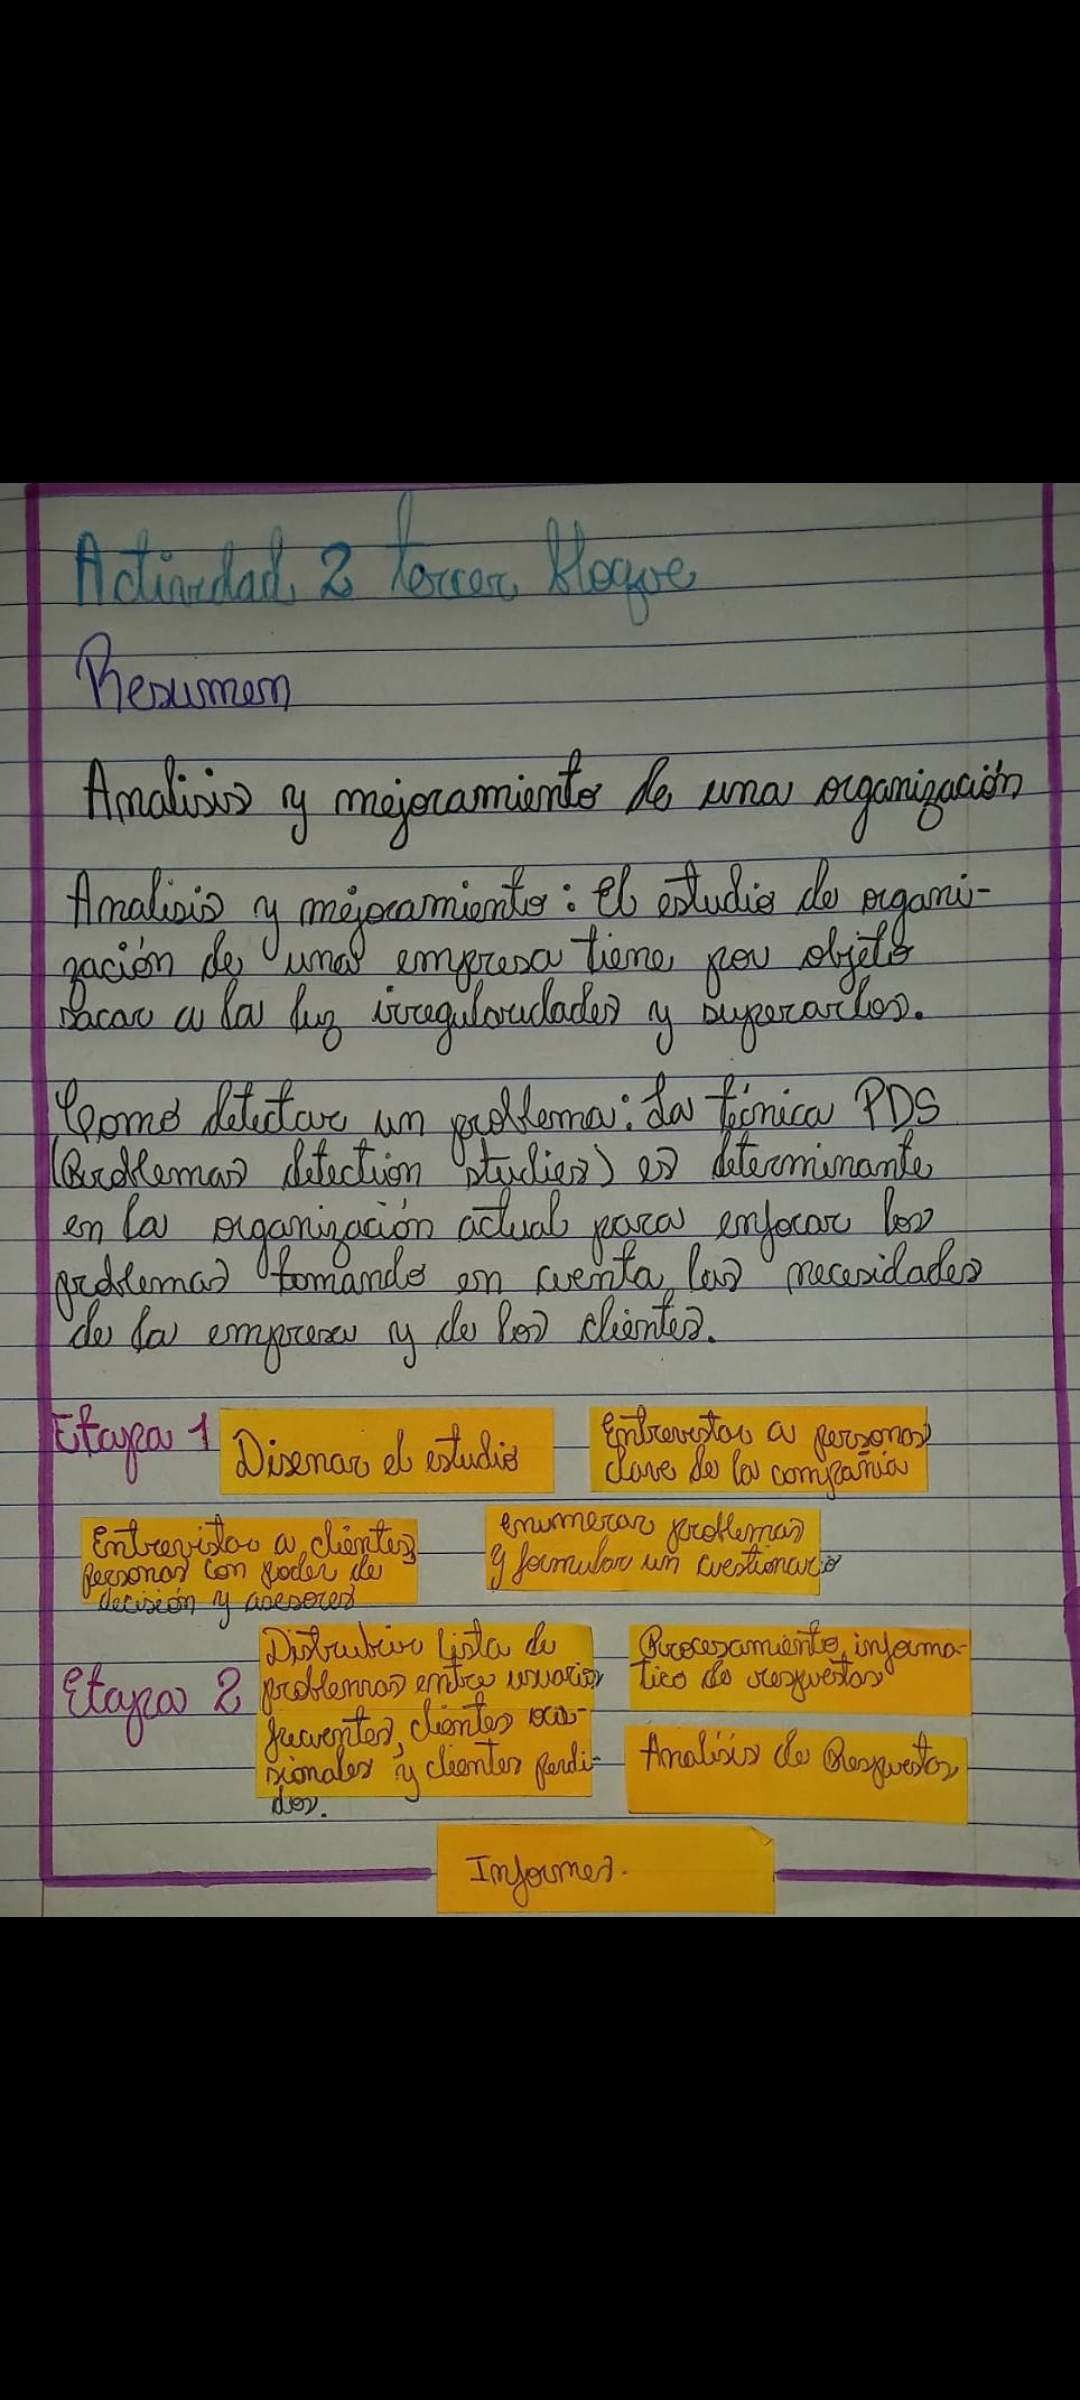 Actividad 2 tercer bloque
Resumen
Analisis y mejoramiento de una organización
Analisis y mejoramiento: El estudio de organi-
zación de una empresa tiene por objeto
sacar a la luz irregularidades y superarlos.
Como detectar un problema: La técnica PDS
(Problemas detection studies) es determinante
en la organización actual para enfocar los
problemas tomando en cuenta las necesidades
de la empresa y de los clientes.
Etapa 1
Disenar el estudio
Entrevistar a personas
clave de la compañia
Entrevistar a clientes,
personas con poder de
decisión y asesores
enumerar problemas
y formular un cuestionario
Etapa 2
Distrubuir lista de
problemas entre usuarios
frecuentes, clientes oca-
sionales y clientes perdi-
dos.
Procesamiento informa-
tico de respuestas
Analisis de Respuestas
Informes.